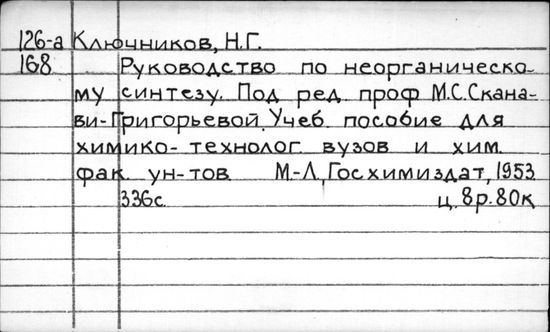 126-а Ключников, Н.Г.
168 Руководство по неорганическо-
му синтезу. Под ред проф М.С.Скана-
ви-Григорьевой. Учеб пособие для
химико-технолог вузов и хим.
фак ун-тов М.-Л., Госхимиздат, 1953
336с. ц. 8р.80к